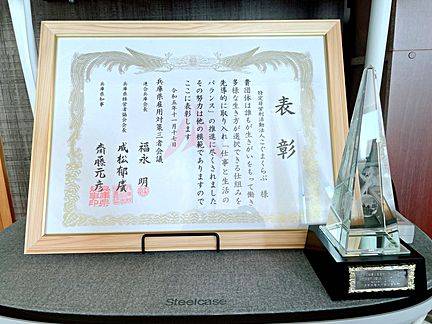 表彰
特定非営利活動法人こぐまくらぶ 様
貴団体は誰もが生きがいをもって働き
多様な生き方が選択できる仕組みを
先導的に取り入れ「仕事と生活の
バランス」の推進に尽くされました
その努力は他の模範でありますので
ここに表彰します
令和五年十一月十七日
兵庫県雇用対策三者会議
連合兵庫会長 福永 明
兵庫県経営者協会会長 成松郁廣
兵庫県知事 齋藤元彦
Steelcase